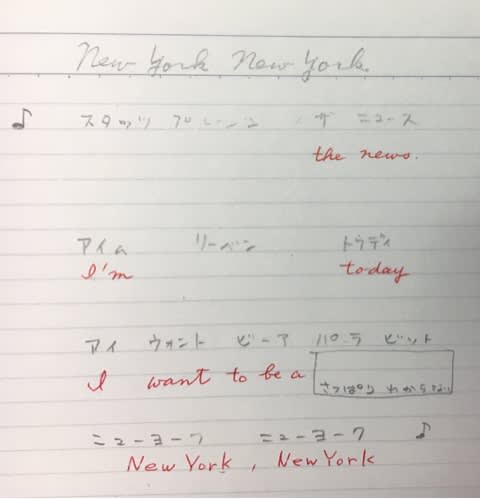 New York New York.
♪ スタッツ プレージン ザ ニュース
the news.
アイム リーベン トゥデイ
I'm today
アイ ウォント ビーア パ ラ ビット
I want to be a さっぱり わからない
ニューヨーク ニューヨーク ♪
New York , New York